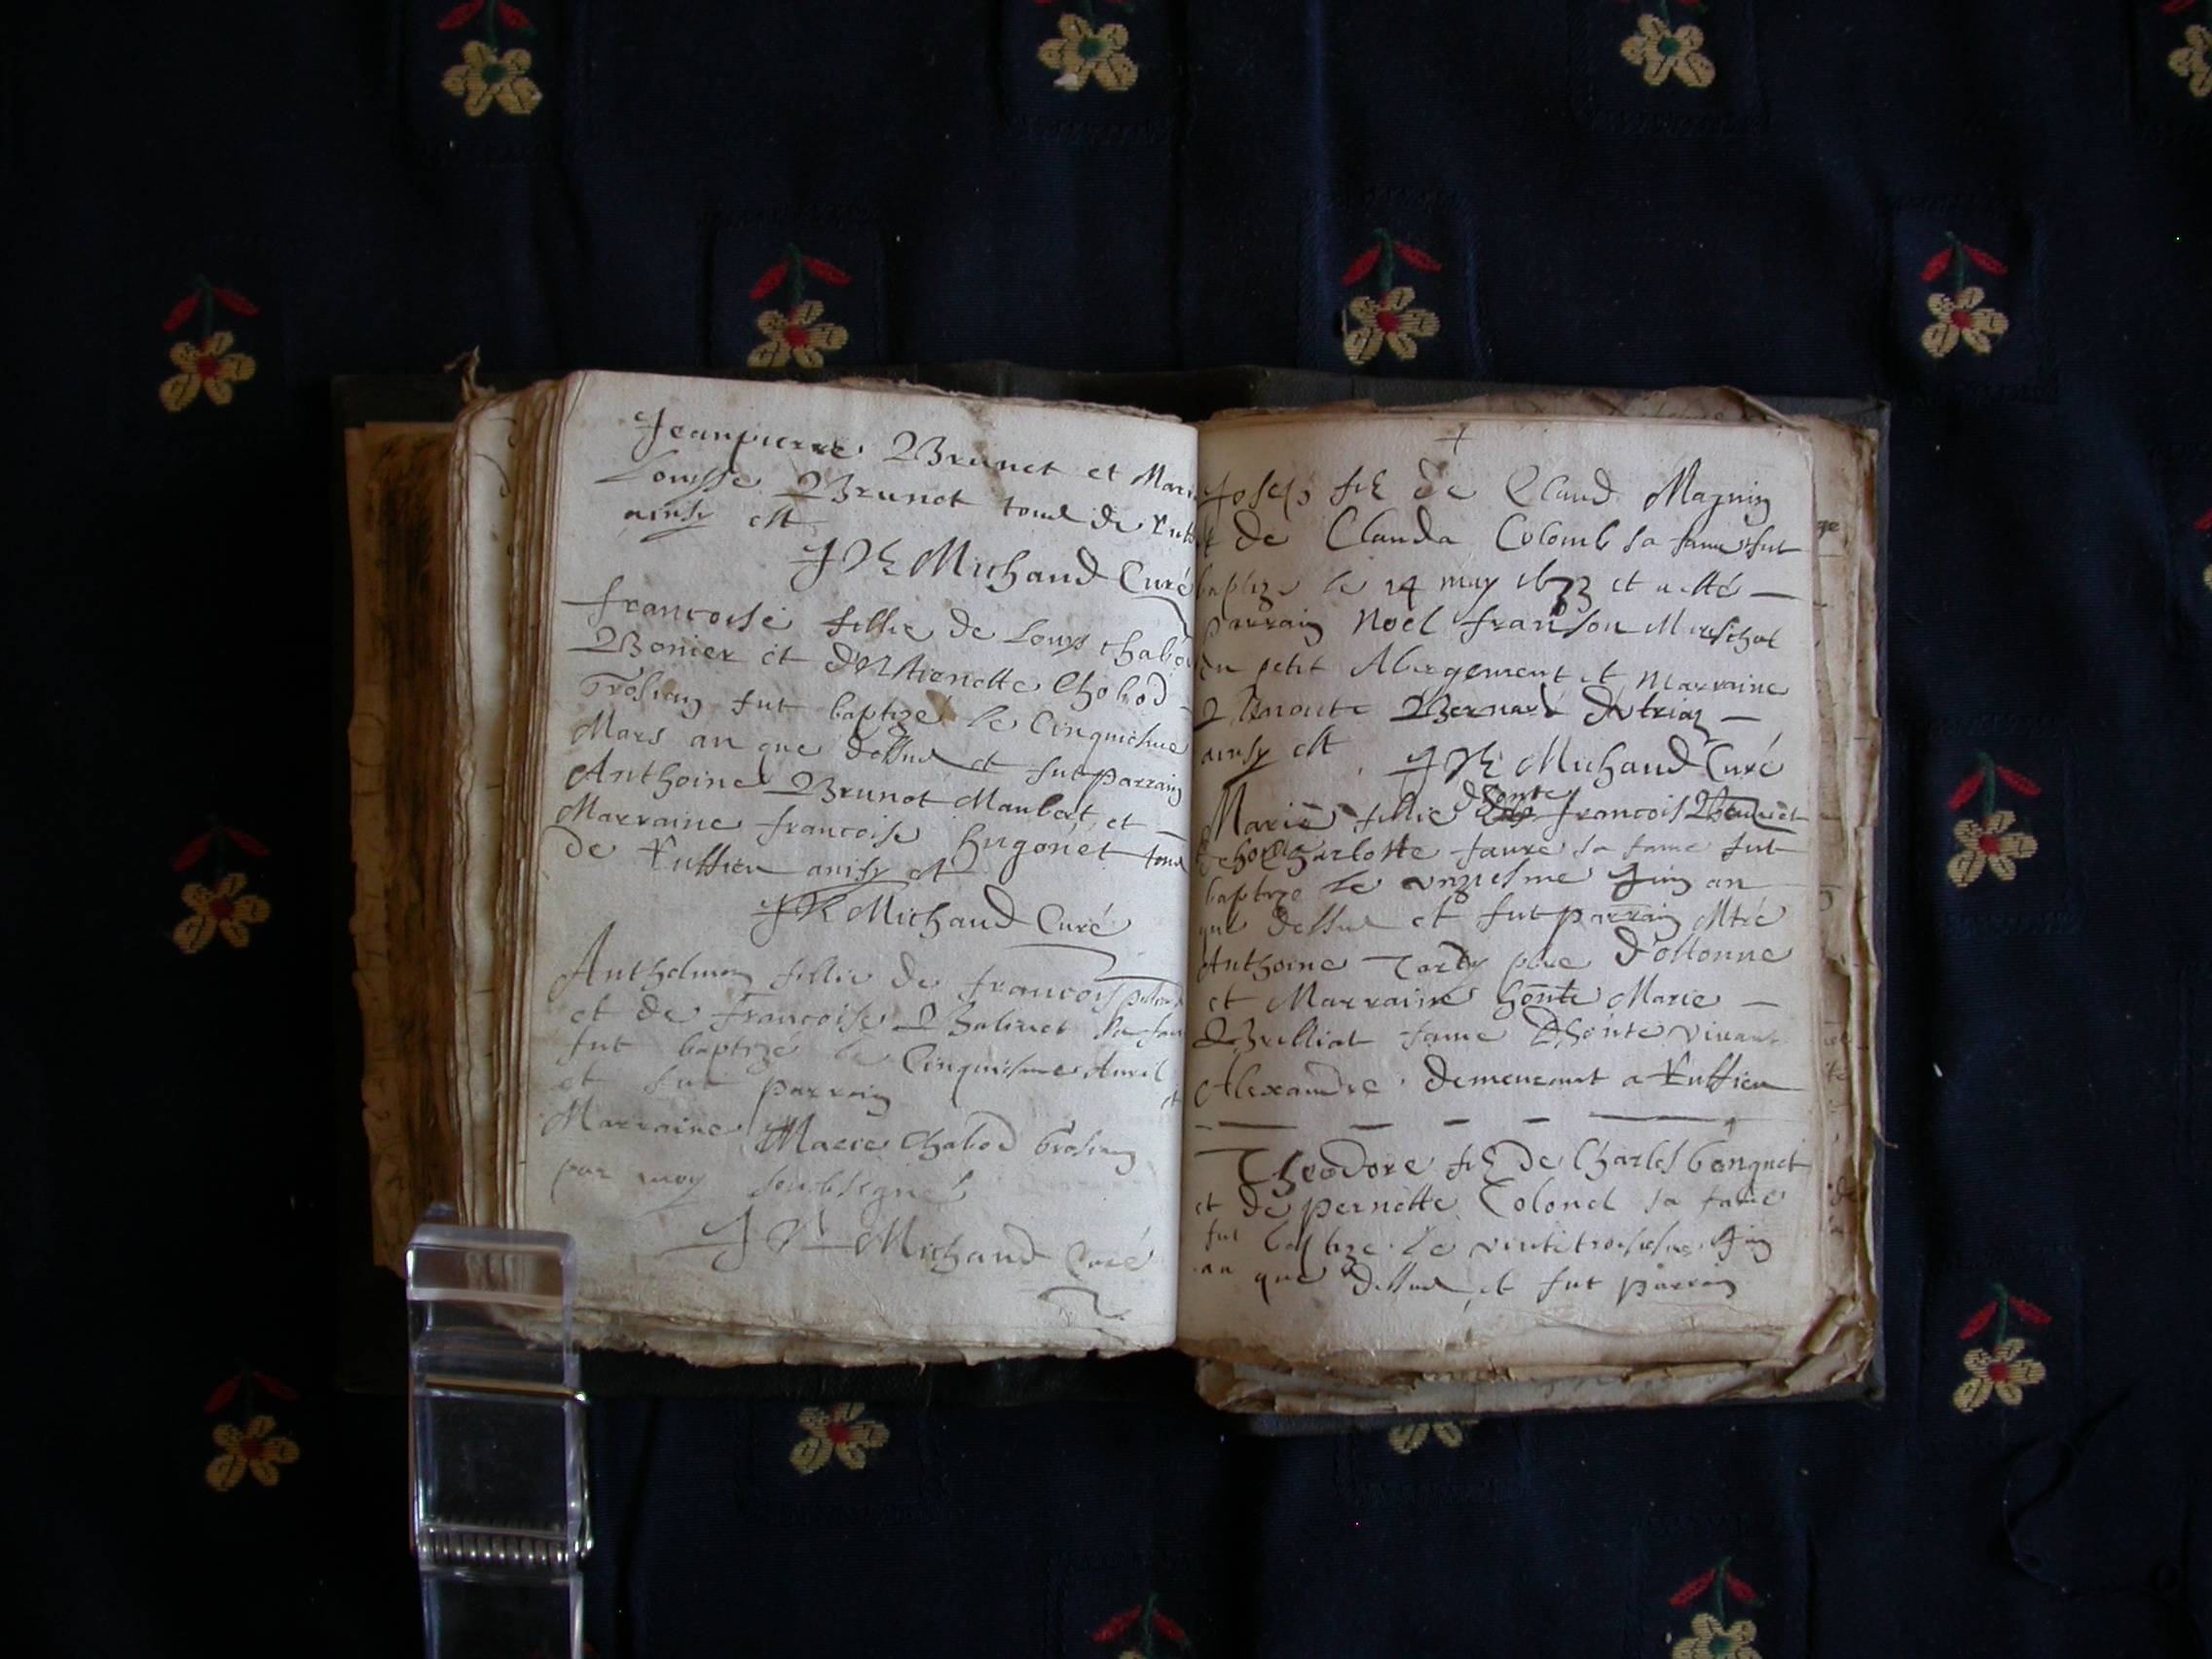 Jeanpierre Brunet et Mari
Louysse Brunet tous de Ruff
ainsy est
Michaud Curé
francoise fillie de Louys Chabo
Bonier et d'Estienette Chobod
Trosian fut baptizé le Cinquiesme
Mars an que dessus et fut parrain
Anthoine Brunet Maubert et
Marraine francoise Hugonet tous
de Ruffieu ainsy est
Michaud Curé
Anthelman fillie de francois
et de francoise Balivet sa fam
fut baptizé le Cinquiesme Auril
et fut parrain et
Marraine Marie Chabod trosian
par moy soubsigné
Michaud Curé
+
Joseph fil de Claud Magnin
et de Clauda Colomb sa fame fut
baptize le 14 may 1673 et a esté
parrain Noel franson Mareschal
du petit Abergement et Marraine
Benoite Bernard
ainsy est Michaud Curé
Marie fillie francois
Charlotte faure sa fame fut
baptize le unziesme Juin an
que dessus et fut parrain Mtre
Anthoine Tardy d'ossonne
et Marraine honte Marie
Brilliat fame Dhonte vivant
Alexandre demeurant a Ruffieu
Theodore fil de Charles bonguet
et de pernette Colonel sa fame
fut baptize le vintitroisiesme Juin
an que dessus et fut parrain